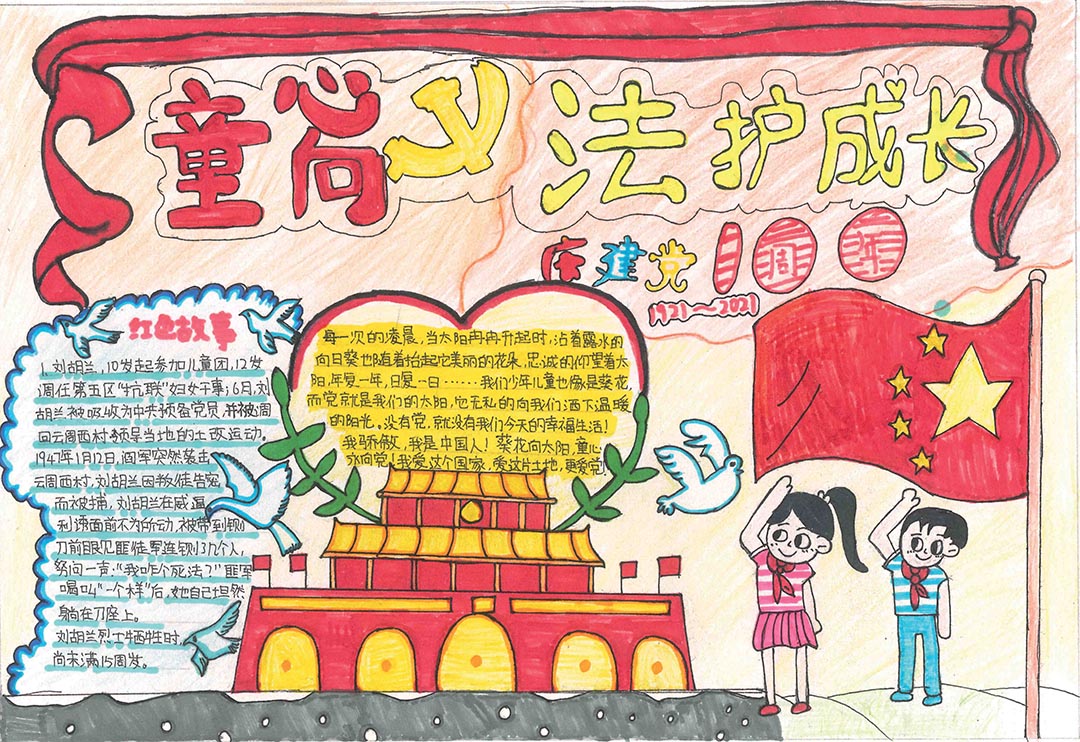 童心向
法护成长
庆建党100周年
1921~2021
红色故事
1.刘胡兰,10岁起参加儿童团,12岁
调任第五区"抗联"妇女干事;6月,刘
胡兰被吸收为中共预备党员,并被调
回云周西村领导当地的土改运动。
1947年1月12日,阎军突然袭击
云周西村,刘胡兰因叛徒告密
而被捕,刘胡兰在威逼
利诱面前不为所动,被带到铡
刀前眼见匪徒军连铡几个人,
怒问一声:"我咋个死法?"匪军
喝叫"一个样"后,她自己坦然
躺在刀座上。
刘胡兰烈士牺牲时,
尚未满15周岁。
每一次的凌晨,当太阳冉冉升起时,沾着露水的
向日葵也随着抬起它美丽的花朵,忠诚的仰望着太
阳,年复一年,日复一日……我们少年儿童也像是葵花,
而党就是我们的太阳,它无私的向我们洒下温暖
的阳光。没有党,就没有我们今天的幸福生活!
我骄傲,我是中国人!葵花向太阳,童心
永向党!我爱这个国家,爱这片土地,更爱党!